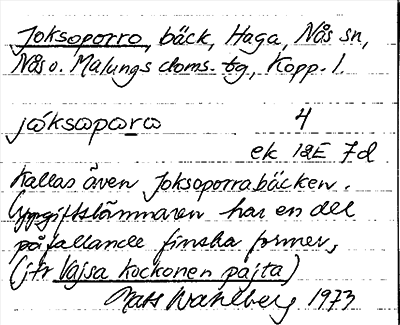 Joksoporro, bäck, Haga, Nås sn,
Nås o. Malungs doms. tg, Kopp. l.
jɷ́ksɷpɷrɷ 4
ek 12E 7d
Kallas även Joksoporrabäcken.
Uppgiftslämnaren har en del
påfallande finska former,
(jfr Vajsa kockonen pajta)
Mats Wahlberg 1973